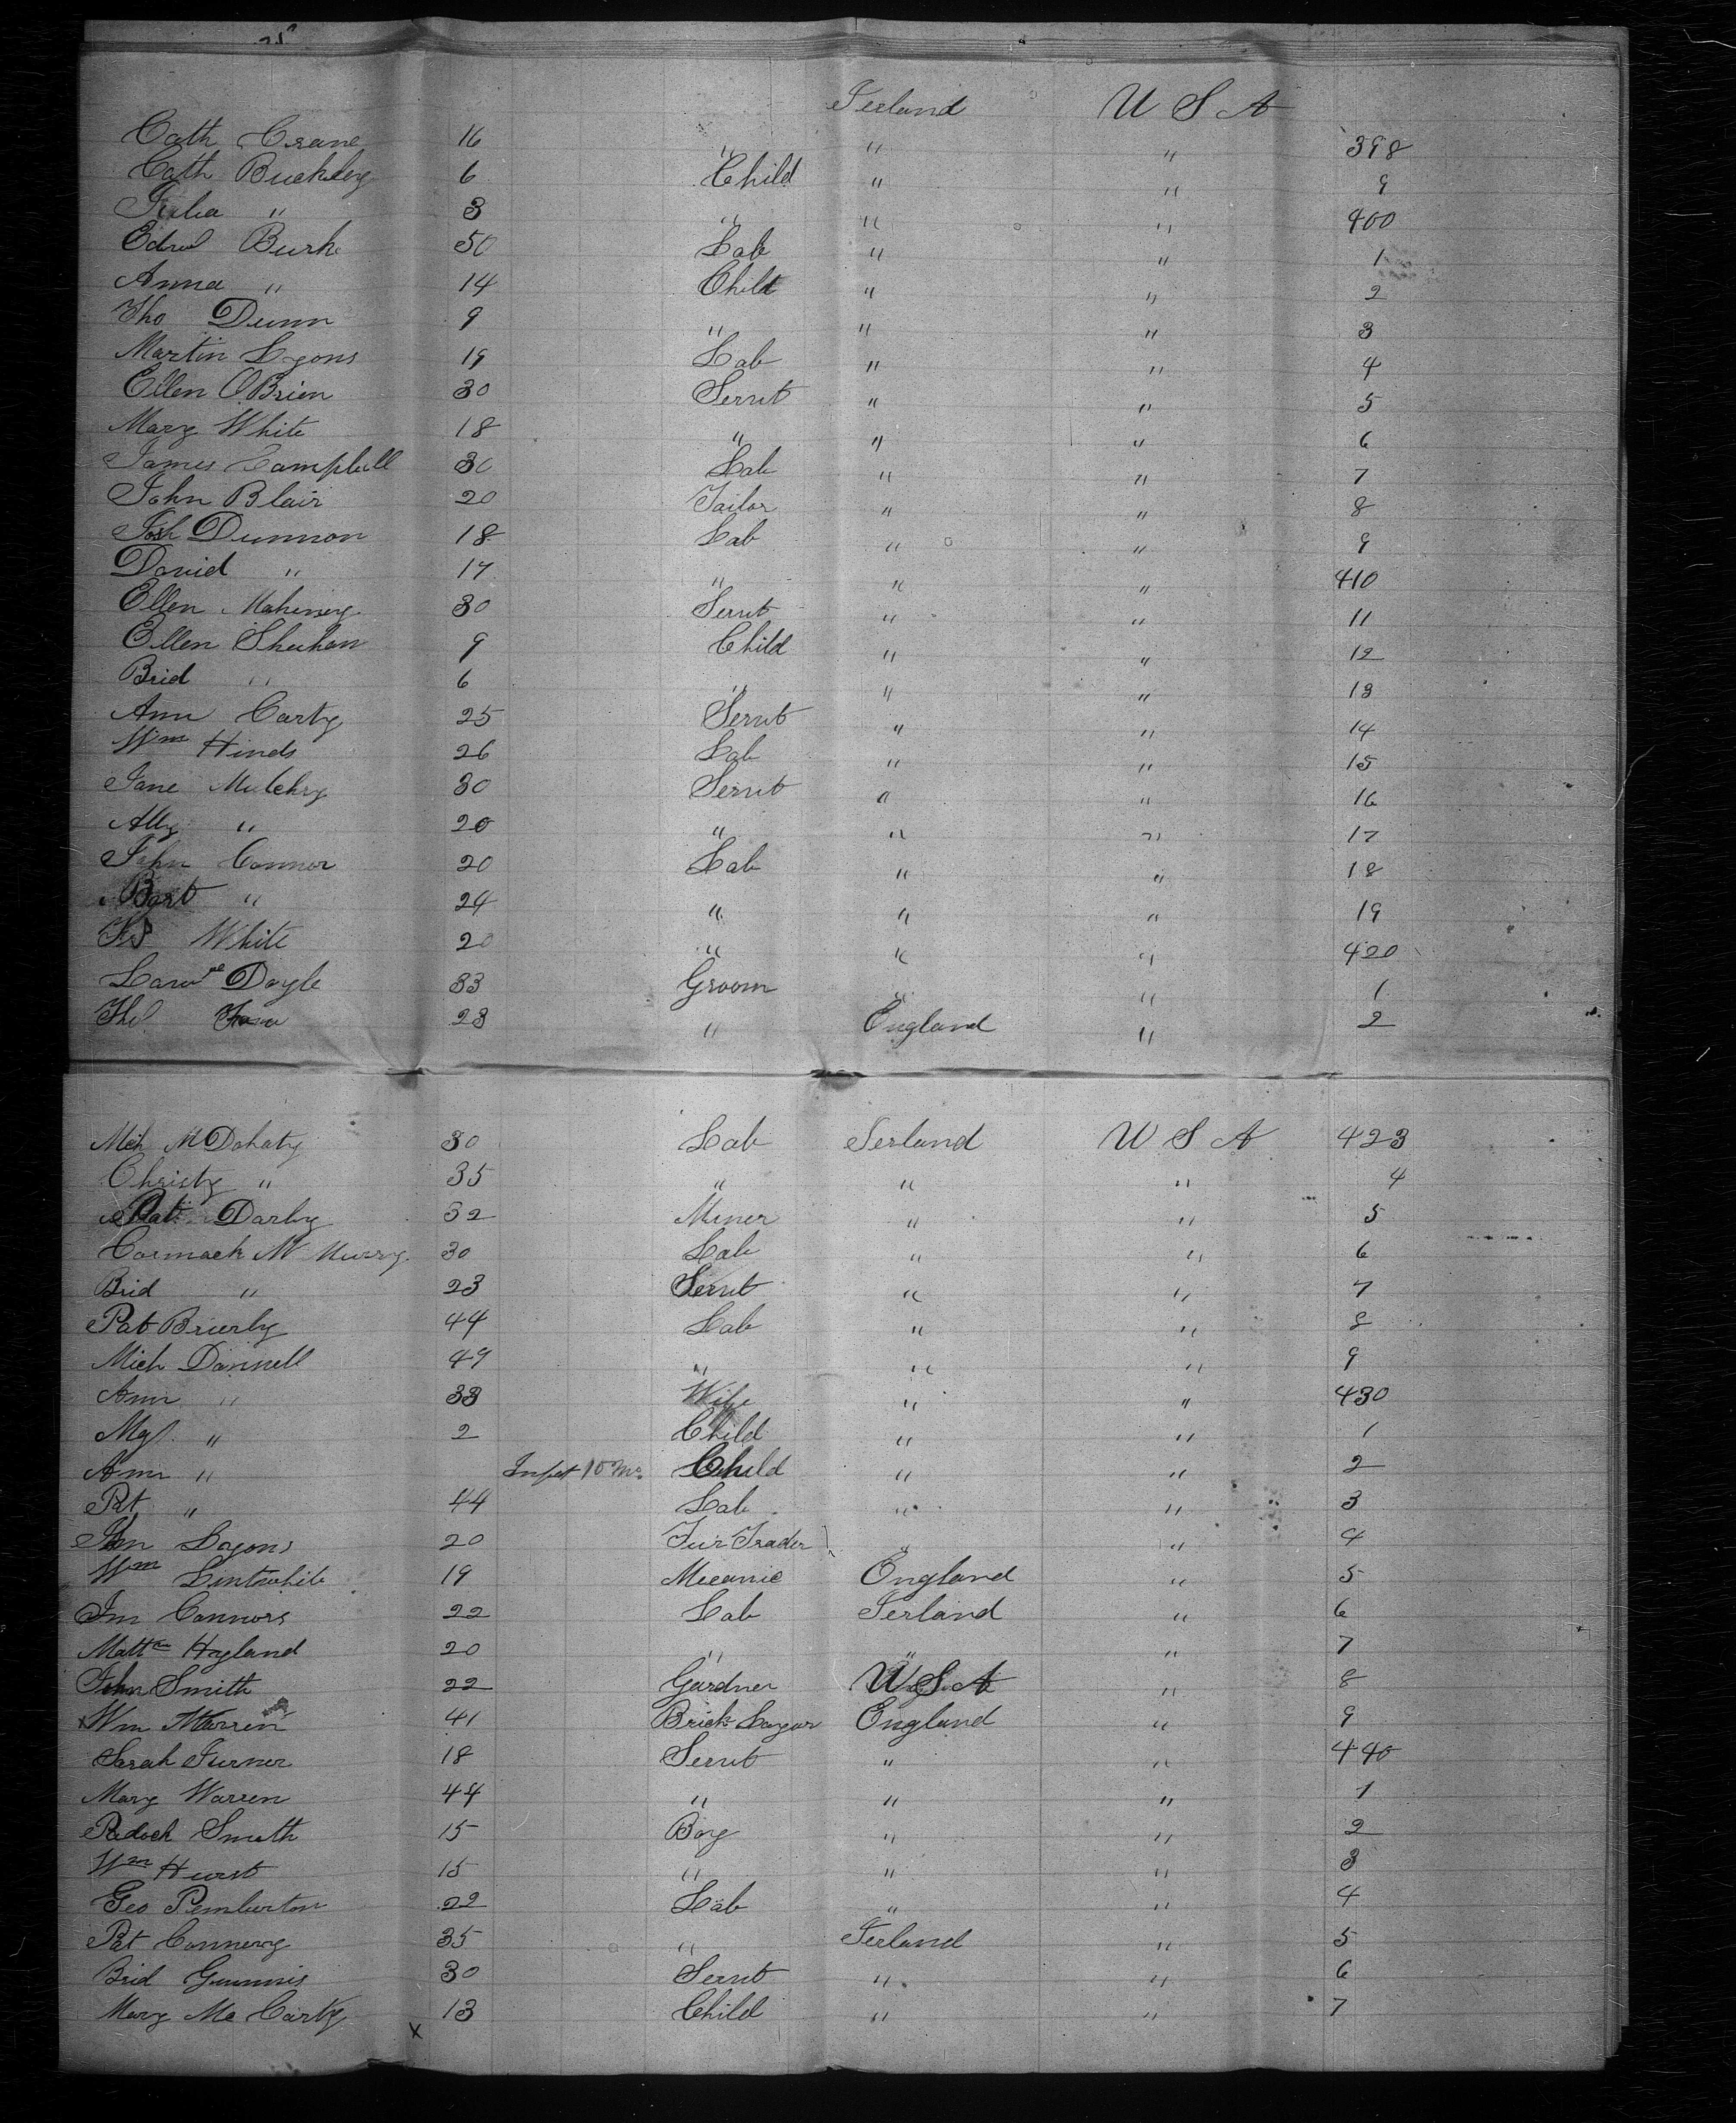 Ierland U S A
Cath Crane 16 " " " 398
Cath Buckley 6 Child " " 9
Julia " 3 " " " 400
Edwd Burk 50 Lab " " 1
Anna " 14 Child " " 2
Tho Dunn 9 " " " 3
Martin Lyons 19 Lab " " 4
Ellen OBrien 30 Servt " " 5
Mary White 18 " " " 6
James Campbell 30 Lab " " 7
John Blair 20 Tailor " " 8
Josh Dunnon 18 Lab " " 9
David " 17 " " " 410
Ellen Maheney 30 Servt " " 11
Ellen Sheehan 9 Child " " 12
Brid " 6 " " " 13
Ann Carty 25 Servt " " 14
Wm Hinds 26 Lab " " 15
Jane Mulchy 30 Servt " " 16
Ally " 20 " " " 17
John Connor 20 Lab " " 18
Bart " 24 " " " 19
White 20 " " " 420
Lawre Doyle 33 Groom " " 1
Tho 23 " England " 2
Mich McDohaty 30 Lab Ierland U S A 423
Christy " 35 " " " 4
Pat Darby 32 Miner " " 5
Cormack Mc Murry 30 Lab " " 6
Brid " 23 Servt " " 7
Pat Brierly 44 Lab " " 8
Mich Donnell 49 " " " 9
Ann " 33 Wife " " 430
Mgt " 2 Child " " 1
Ann " Infat 10 Mo Child " " 2
Pat " 44 Lab " " 3
Jon Lyons 20 Fur Trader " " 4
Wm Lintwhite 19 Mecanic England " 5
Jm Connors 22 Lab Ierland " 6
Matt Hyland 20 " " " 7
John Smith 22 Gardner U S A " 8
x Wm Warren 41 Brick Layar England " 9
Sarah Turner 18 Servt " " 440
Mary Warren 44 " " " 1
Padock Smith 15 Boy " " 2
Wm Hurst 15 " " " 3
Geo Pemburton 22 Lab " " 4
Pat Connerry 35 " Ierland " 5
Brid Gummis 30 Servt " " 6
Mary Mc Carty 13 Child " " 7
x